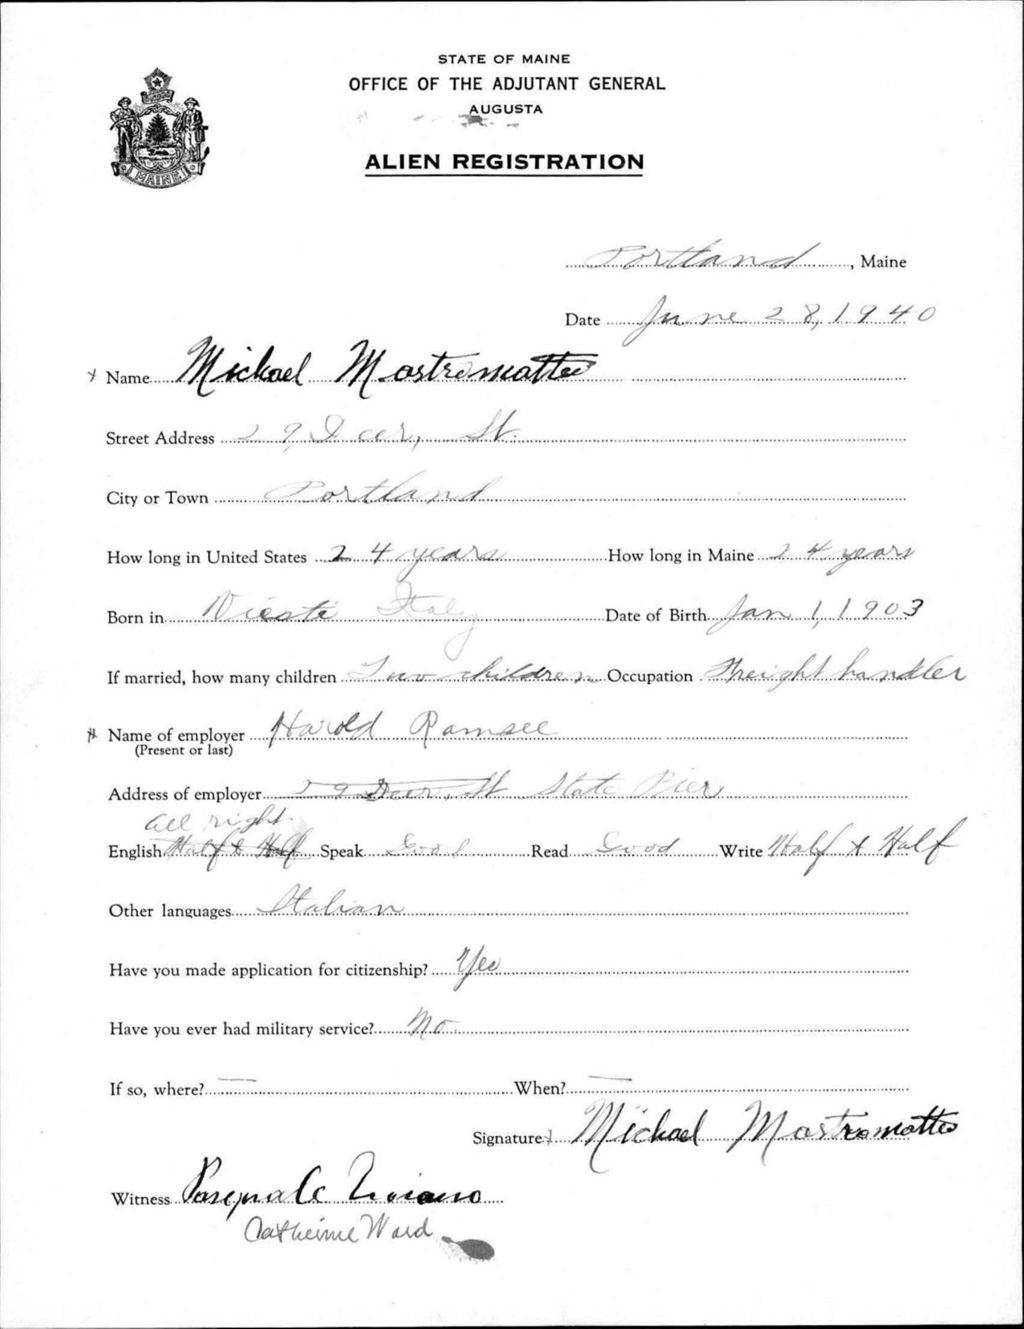 STATE OF MAINE
OFFICE OF THE ADJUTANT GENERAL
AUGUSTA
ALIEN REGISTRATION
MAINE
Portland, Maine
Date June 28, 1940
x Name Michael Mastromatteo
Street Address 29 Deer, St.
City or Town Portland
How long in United States 24 years How long in Maine 24 years
Born in Vieste Italy Date of Birth Jan 1, 1903
If married, how many children Two children Occupation Freight handler
Name of employer Harold Ramsee
(Present or last)
Address of employer 29 Deer, St State Pier
all right.
English Half & Half Speak Good Read Good Write Half & Half
Other languages Italian
Have you made application for citizenship? Yes
Have you ever had military service? No
If so, where? — When? —
Signature x Michael Mastromatteo
Witness Pasquale
Catherine Ward